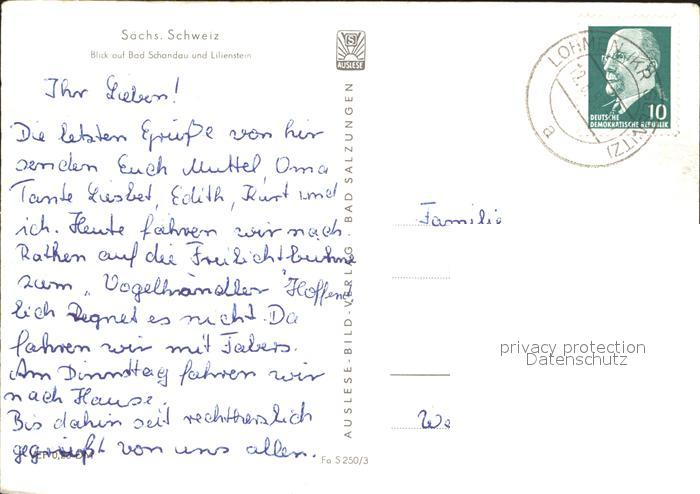 Sächs. Schweiz
Blick auf Bad Schandau und Lilienstein
AUSLESE
Ihr Lieben!
Die letzten Grüße von hir
senden Euch Muttel, Oma
Tante Liesbet, Edith, Kurt und
ich. Heute fahren wir nach
Rathen auf die Freilichtbühne
zum „Vogelhändler" Hoffent
lich Regnet es nicht. Da
fahren wir mit Fabers.
Am Dinnstag fahren wir
nach Hause.
Bis dahin seit rechtherzlich
gegrüßt von uns allen.
Fa S 250/3
AUSLESE-BILD-VERLAG · BAD SALZUNGEN
LOHMEN (KR
a
DEUTSCHE
DEMOKRATISCHE REPUBLIK
10
Familie
privacy protection
Datenschutz
We